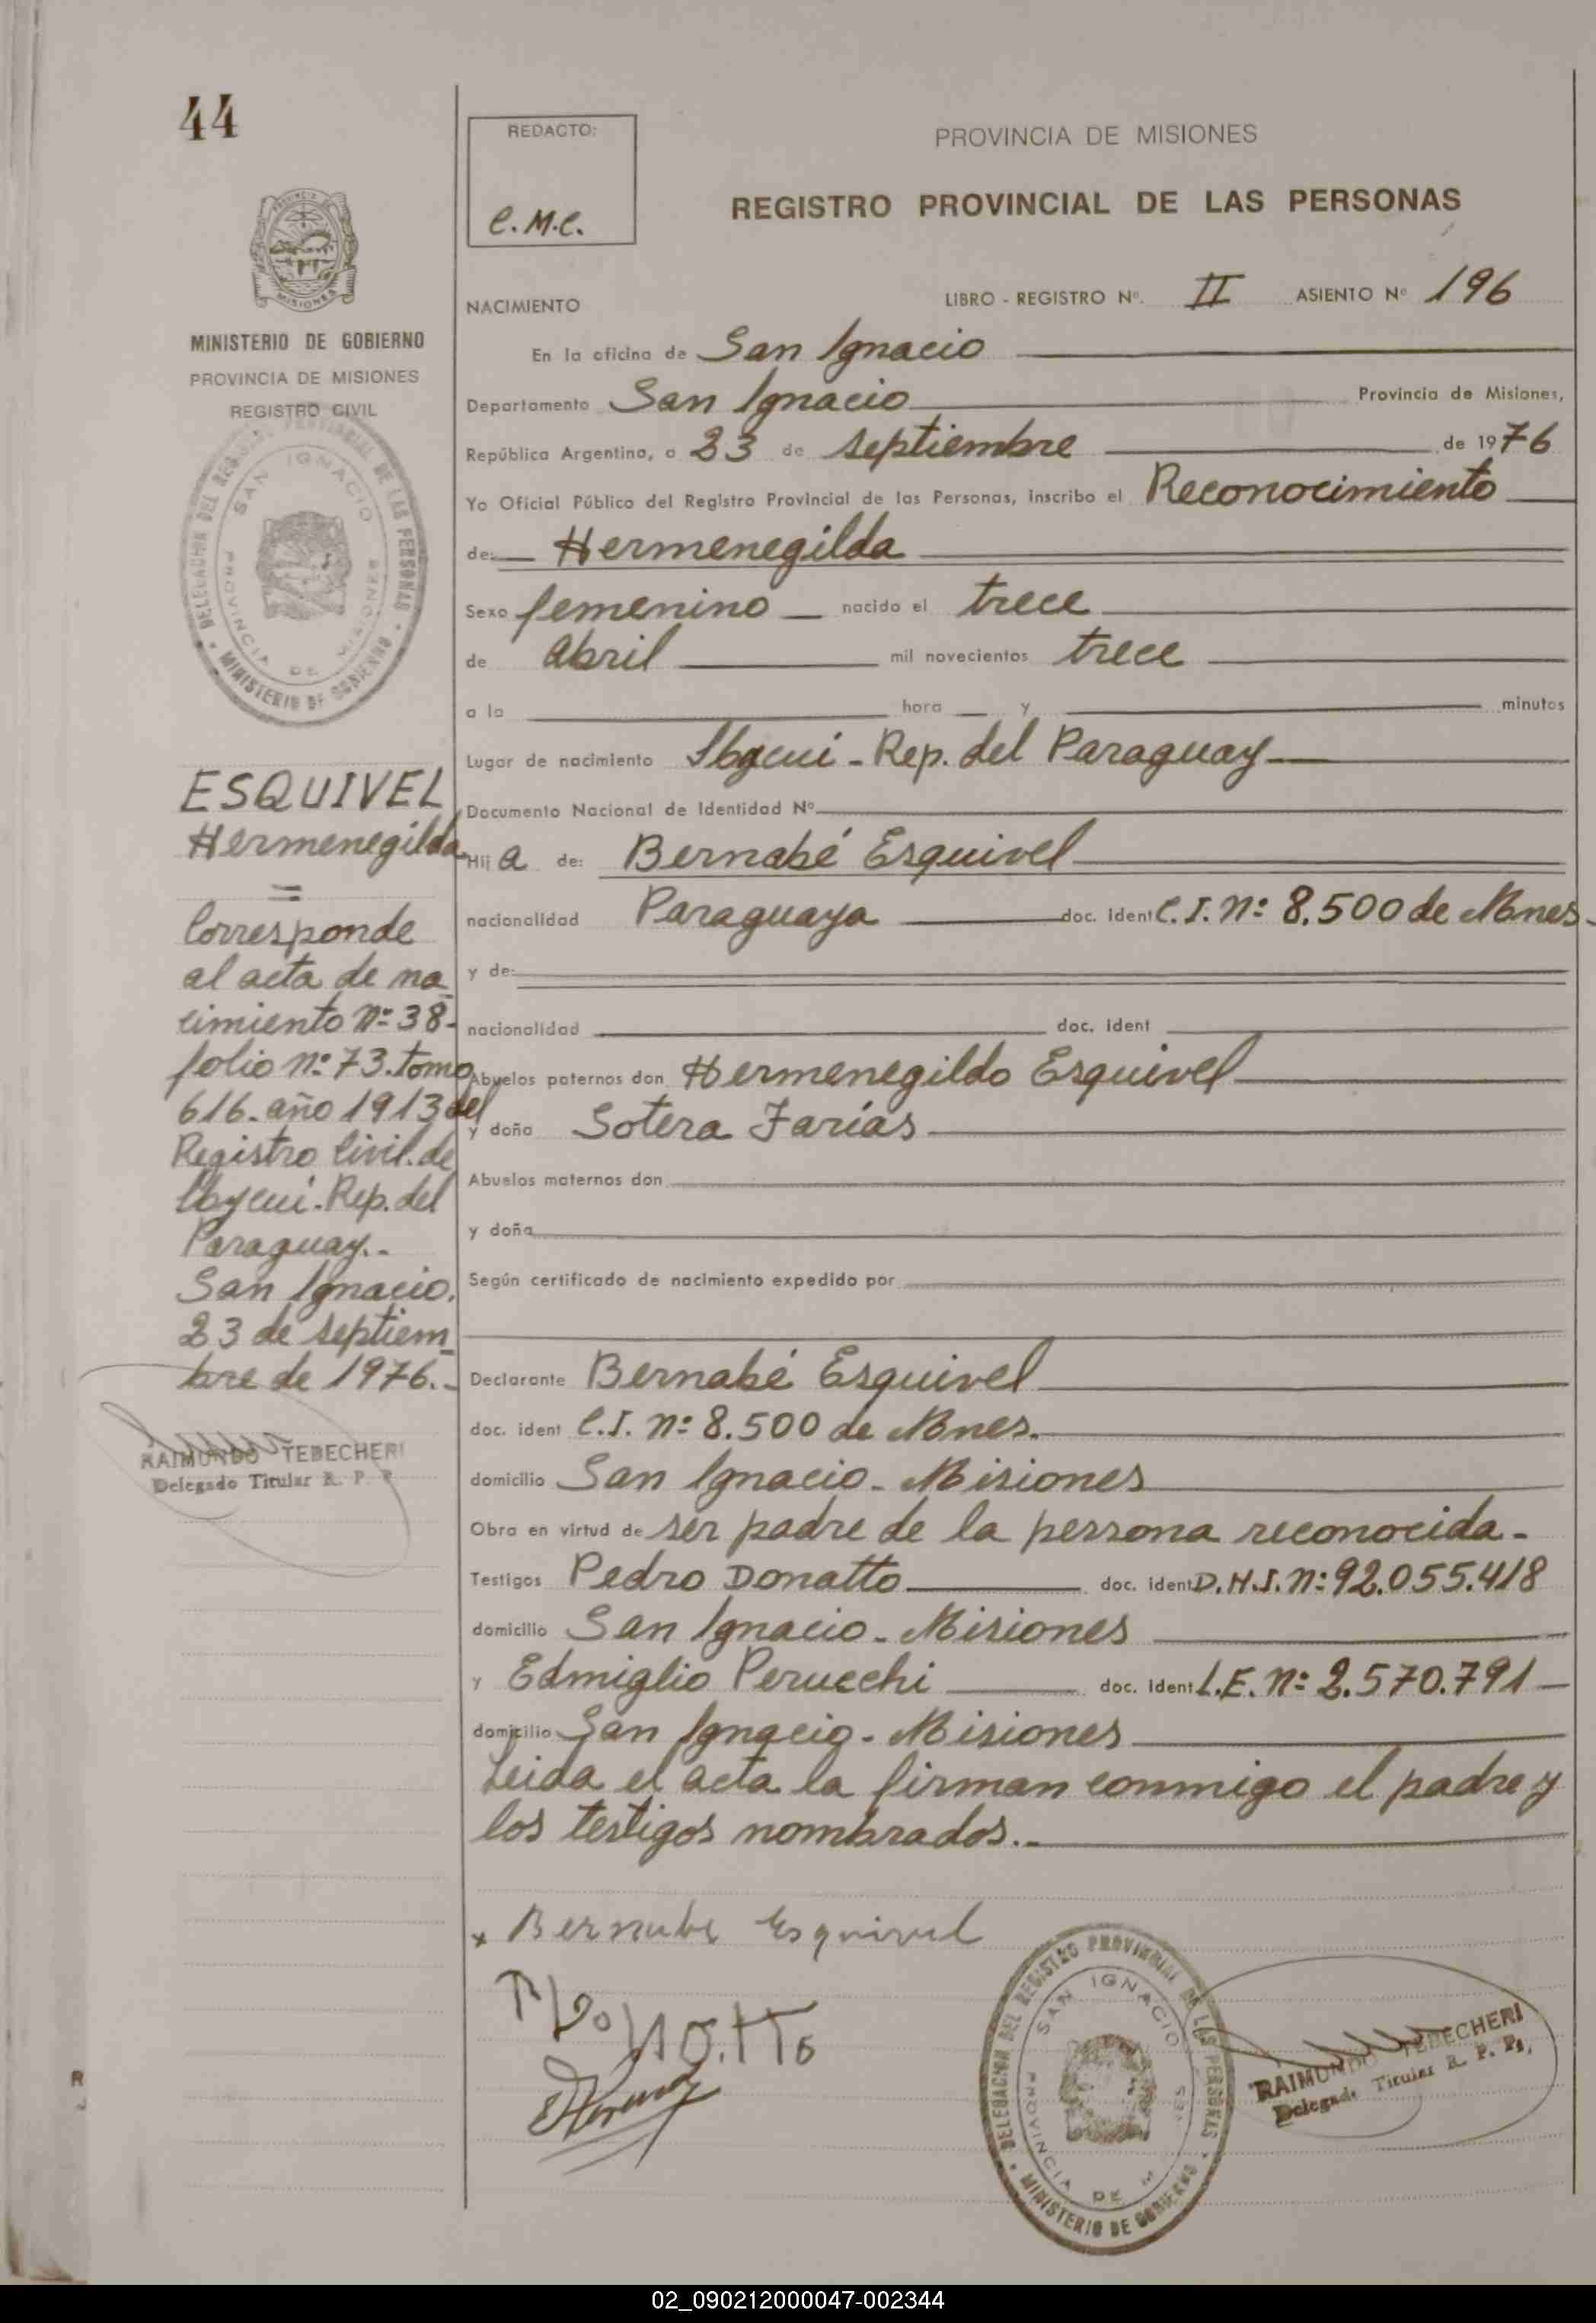 44
REDACTO:
C.M.C.
PROVINCIA DE MISIONES
REGISTRO PROVINCIAL DE LAS PERSONAS
MINISTERIO DE GOBIERNO
PROVINCIA DE MISIONES
REGISTRO CIVIL
DELEGACION DEL REGISTRO PROVINCIAL DE LAS PERSONAS
SAN IGNACIO
PROVINCIA DE MISIONES
MINISTERIO DE GOBIERNO
ESQUIVEL
Hermenegilda
=
Corresponde
al acta de na
cimiento Nº 38-
folio nº 73. tomo
616. año 1913 del
Registro Civil. de
Ibycuí. Rep. del
Paraguay.-
San Ignacio,
23 de septiem
bre de 1976.-
RAIMUNDO TEBECHERI
Delegado Titular R. P. P.
NACIMIENTO LIBRO - REGISTRO Nº. II ASIENTO Nº 196
En la oficina de San Ignacio
Departamento San Ignacio Provincia de Misiones,
República Argentina, a 23 de septiembre de 1976
Yo Oficial Público del Registro Provincial de las Personas, inscribo el Reconocimiento
de: Hermenegilda
Sexo femenino nacido el trece
de abril mil novecientos trece
a la hora y minutos
Lugar de nacimiento Ibycuí - Rep. del Paraguay
Documento Nacional de Identidad Nº
Hij a de: Bernabé Esquivel
nacionalidad Paraguaya doc. ident C.I. Nº 8.500 de Mnes.
y de:
nacionalidad doc. ident
Abuelos paternos don Hermenegildo Esquivel
y doña Sotera Farías
Abuelos maternos don
y doña
Según certificado de nacimiento expedido por
Declarante Bernabé Esquivel
doc. ident C.I. Nº 8.500 de Mnes.
domicilio San Ignacio - Misiones
Obra en virtud de ser padre de la persona reconocida -
Testigos Pedro Donatto doc. ident D.N.I. Nº 92.055.418
domicilio San Ignacio - Misiones
y Edmiglio Perucchi doc. ident L.E. Nº 2.570.791
domicilio San Ignacio - Misiones
Leida el acta la firman conmigo el padre y
los testigos nombrados.-
x Bernabe Esquivel
DELEGACION DEL REGISTRO PROVINCIAL DE LAS PERSONAS
SAN IGNACIO
PROVINCIA DE
MINISTERIO DE GOBIERNO
RAIMUNDO TEBECHERI
Delegado Titular R. P. P.
02_090212000047-002344